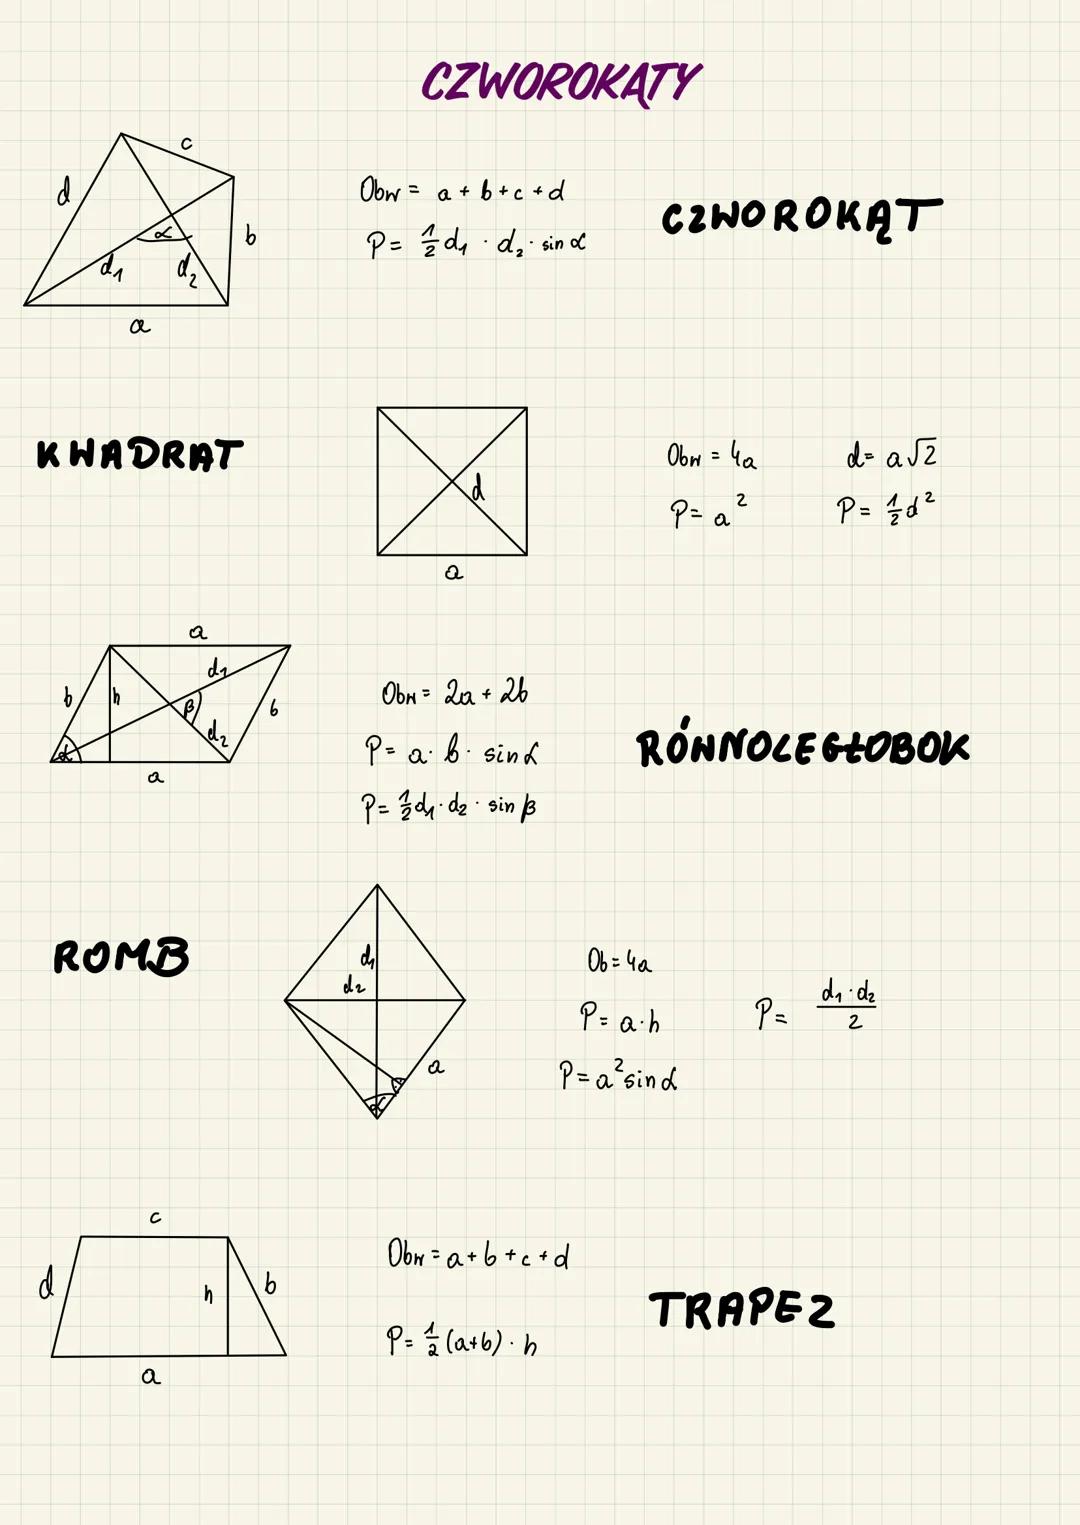 CZWOROKĄTY
c
d
α
b
d₁
d₂
a
Obw = a + b + c + d
P = 1/2 d₁ · d₂ · sin α
CZWOROKĄT
KWADRAT
d
a
Obw = 4a
P = a²
d = a√2
P = 1/2 d²
a
d₁
b
h
β
b
d₂
α
a
Obw = 2a + 2b
P = a · b · sin α
P = 1/2 d₁ · d₂ · sin β
RÓWNOLEGŁOBOK
ROMB
d₁
d₂
a
α
Ob = 4a
P = a · h
P = a² sin α
P = d₁ · d₂ / 2
c
d
h
b
a
Obw = a + b + c + d
P = 1/2 (a+b) · h
TRAPEZ